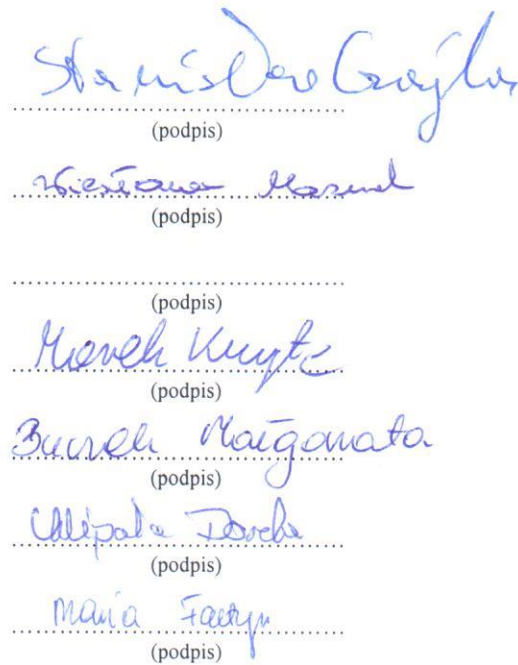 Stanisław
(podpis)
Wiesława Mazurek
(podpis)
(podpis)
Marek
(podpis)
Burek Małgorzata
(podpis)
Chlipała Dorota
(podpis)
Maria
(podpis)